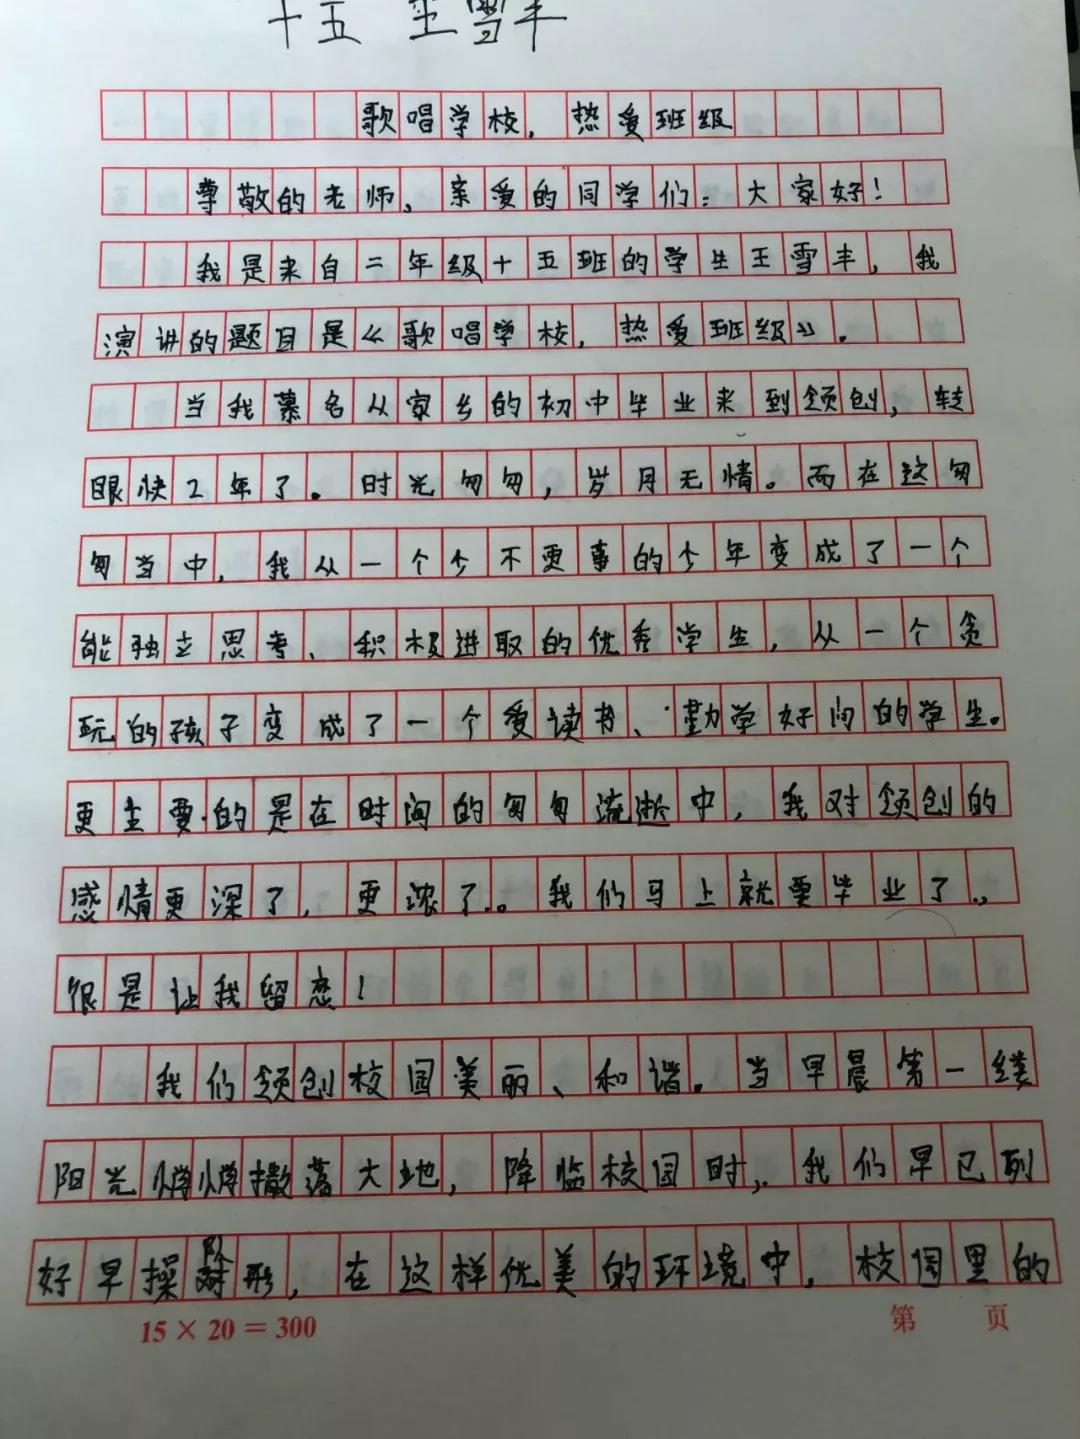 十五 王雪丰
歌唱学校，热爱班级
尊敬的老师，亲爱的同学们：大家好！
我是来自二年级十五班的学生王雪丰，我
演讲的题目是《歌唱学校，热爱班级》。
当我慕名从家乡的初中毕业来到领创，转
眼快2年了。时光匆匆，岁月无情。而在这匆
匆当中，我从一个少不更事的少年变成了一个
能独立思考、积极进取的优秀学生，从一个贪
玩的孩子变成了一个爱读书、勤学好问的学生。
更主要的是在时间的匆匆流逝中，我对领创的
感情更深了，更浓了。我们马上就要毕业了，
很是让我留恋！
我们领创校园美丽、和谐。当早晨第一缕
阳光悄悄撒落大地，降临校园时，我们早已列
好早操阶形，在这样优美的环境中，校园里的
15×20＝300 第 页